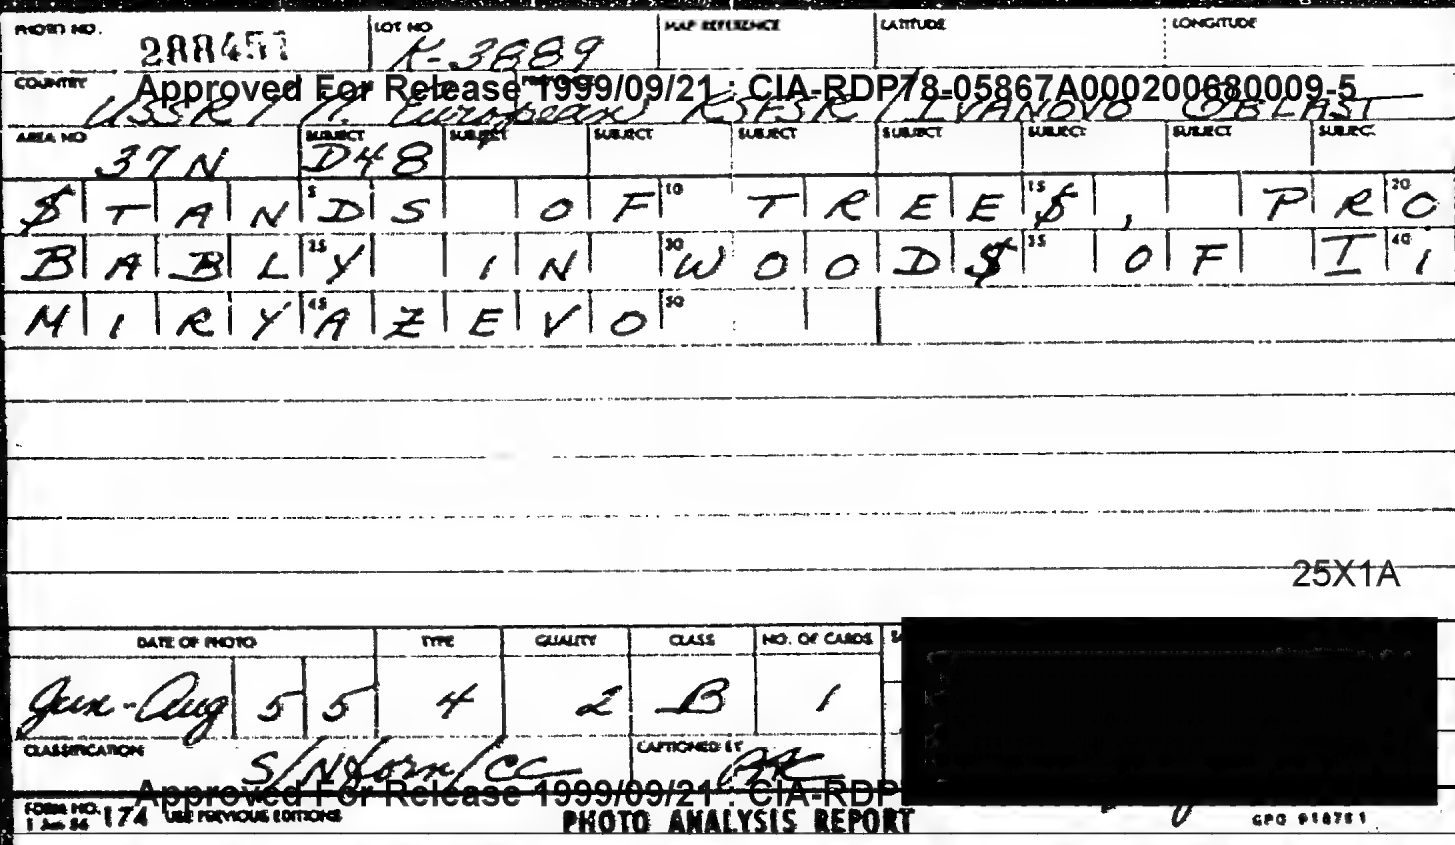 PHOTO NO. 288451 LOT NO K-3889 MAP REFERENCE LATITUDE LONGITUDE
Approved For Release 1999/09/21 : CIA-RDP78-05867A000200680009-5
COUNTRY USSR / N. European RSFSR / IVANOVO OBLAST
AREA NO 37N SUBJECT D48 SUBJECT SUBJECT SUBJECT SUBJECT SUBJECT SUBJECT SUBJECT
$TANDS OF TREE$, PRO
BABLY IN WOOD$ OF II
MIRYAZEVO
25X1A
DATE OF PHOTO TYPE QUALITY CLASS NO. OF CARDS
Jun-Aug 55 4 2 B 1
CLASSIFICATION S/Nforn/CC CAPTIONED BY
Approved For Release 1999/09/21 : CIA-RDP
FORM NO. 174 USE PREVIOUS EDITIONS PHOTO ANALYSIS REPORT GPO 918751
1 Jun 54